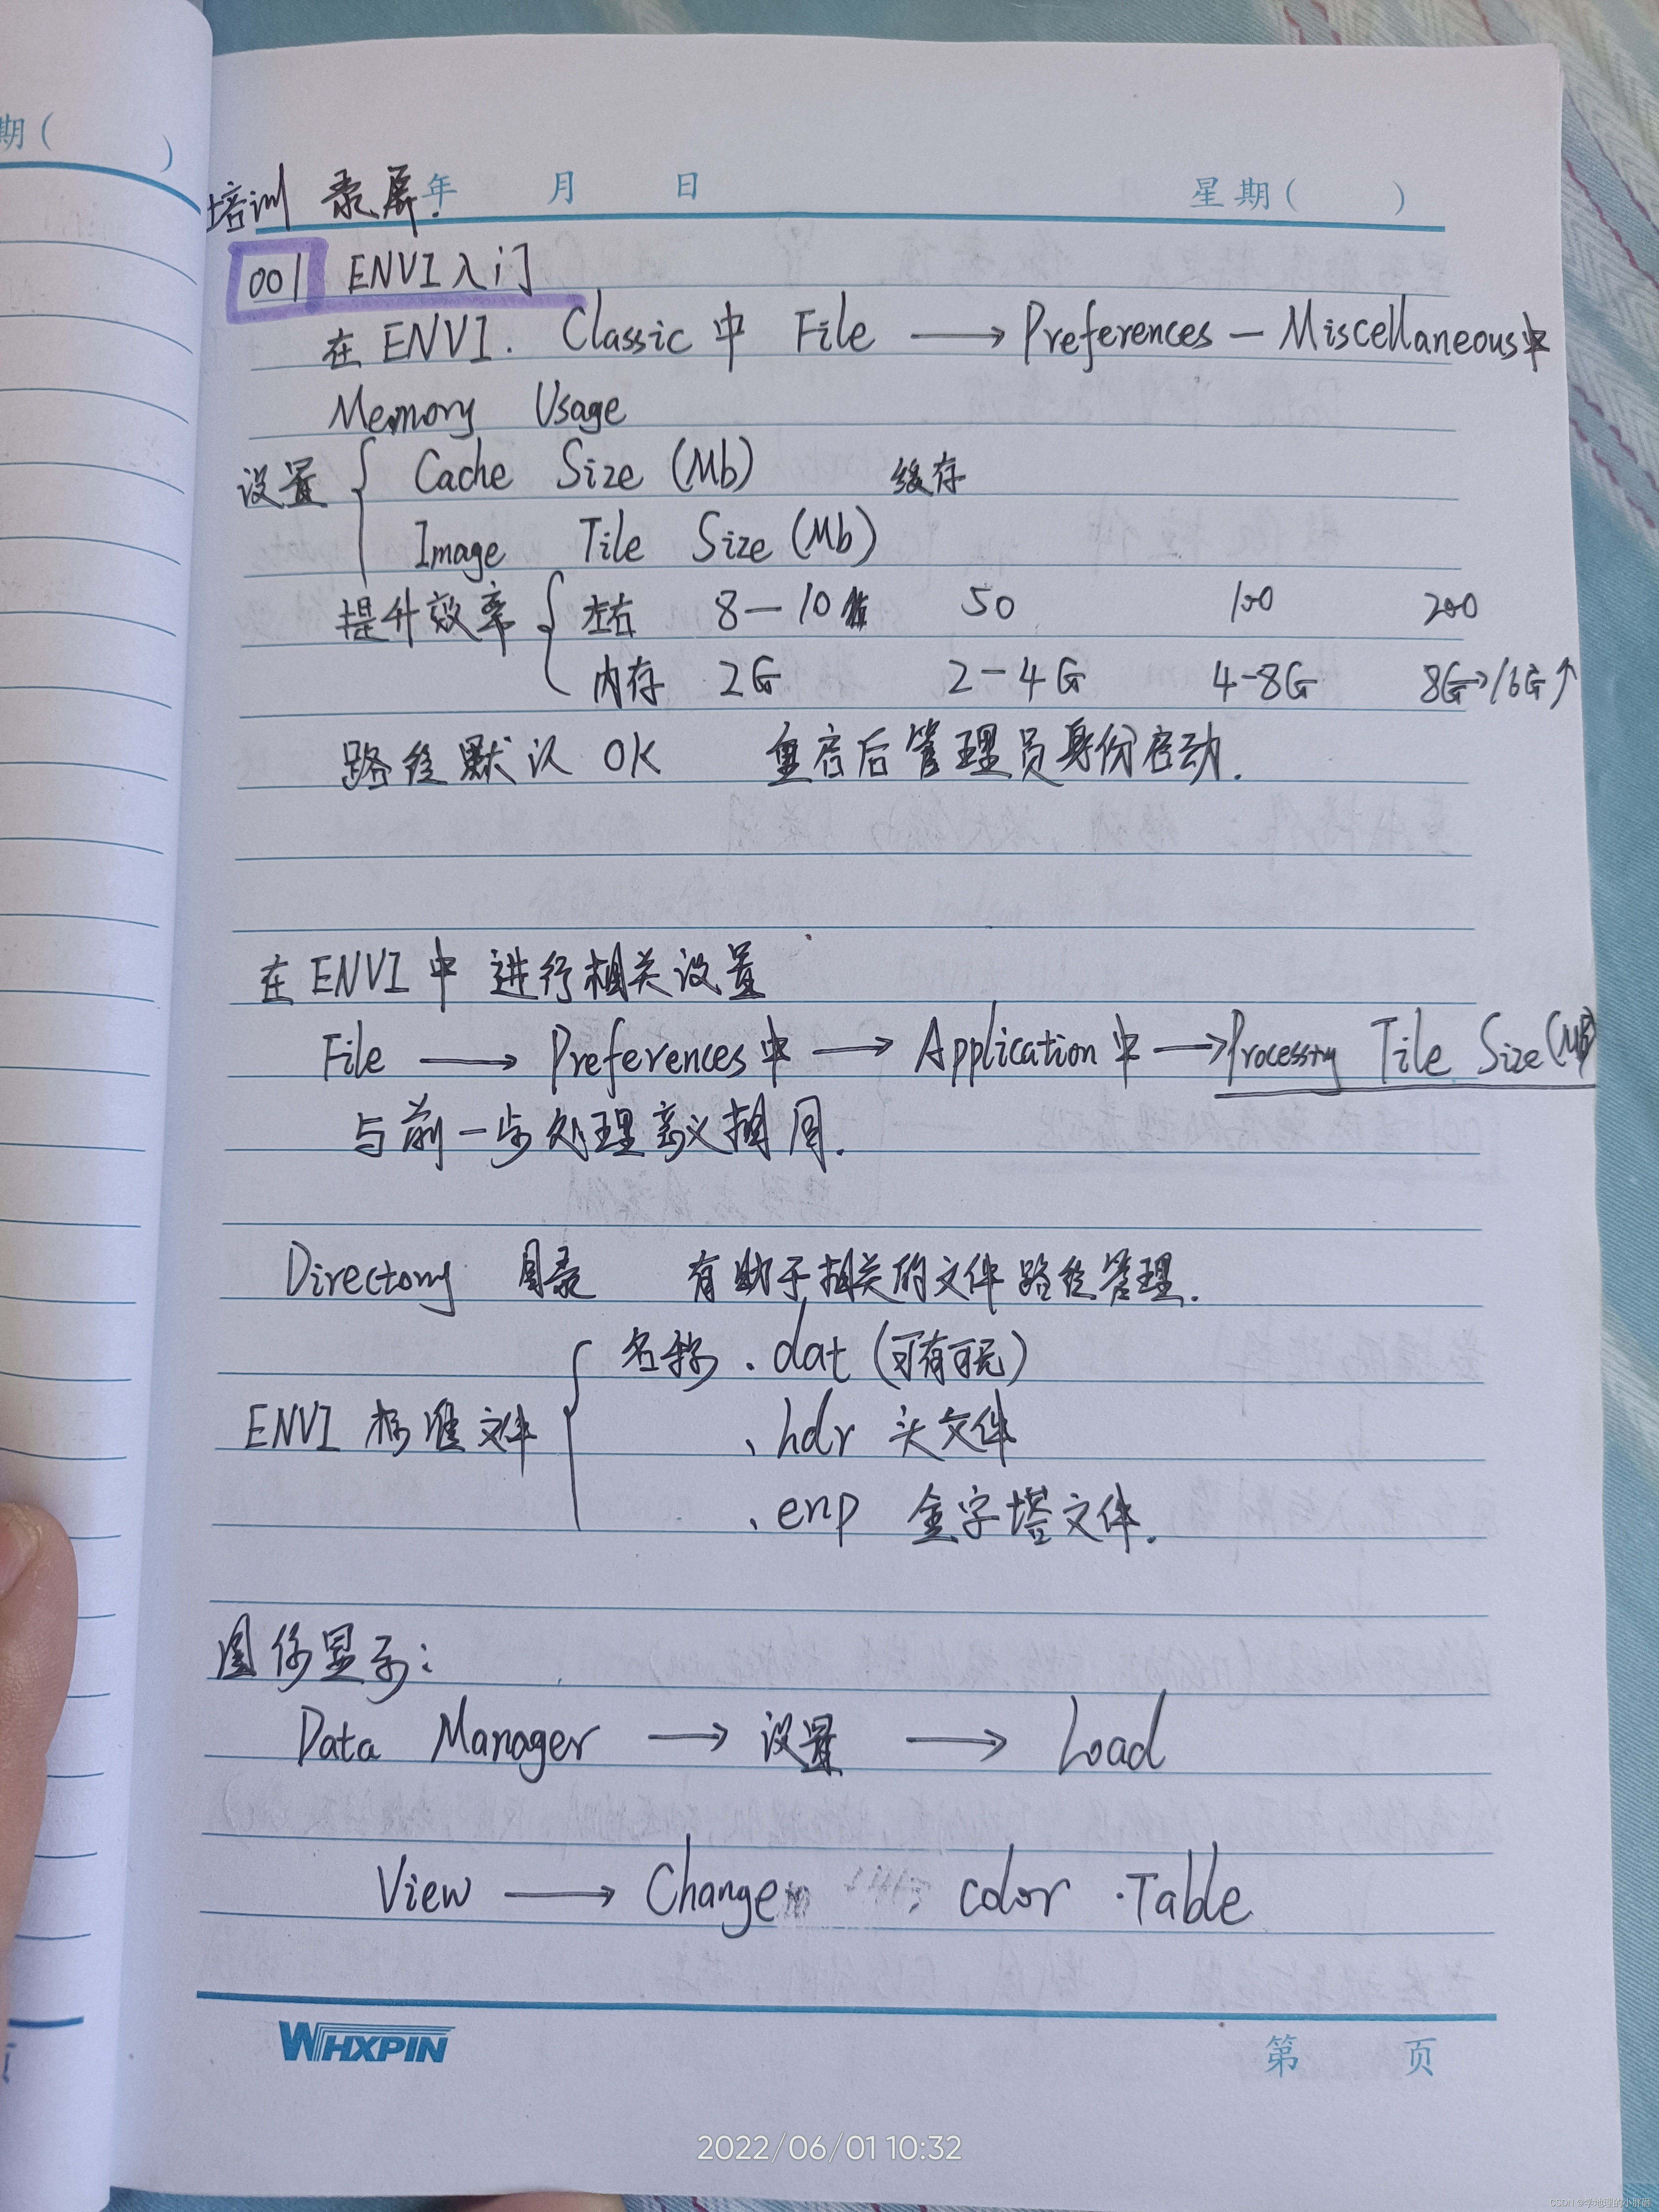 期(
)
培训 录屏. 年 月 日 星期( )
001 ENVI入门
在ENVI. Classic中 File → Preferences — Miscellaneous中
Memory Usage
设置 { Cache Size (Mb) 缓存
Image Tile Size (Mb)
提升效率 { 左右 8—10 50 100 200
内存 2G 2-4G 4-8G 8G→16G↑
路径默认 OK 重启后管理员身份启动.
在ENVI中 进行相关设置
File → Preferences中 → Application中 → Processing Tile Size (MB)
与前一步处理意义相同.
Directory 目录 有助于相关的文件路径管理.
ENVI 标准文件 { 名称 .dat (可有可无)
.hdr 头文件
.enp 金字塔文件.
图像显示:
Data Manager → 设置 → Load
View → Change color Table
WHXPIN
第 页
2022/06/01 10:32